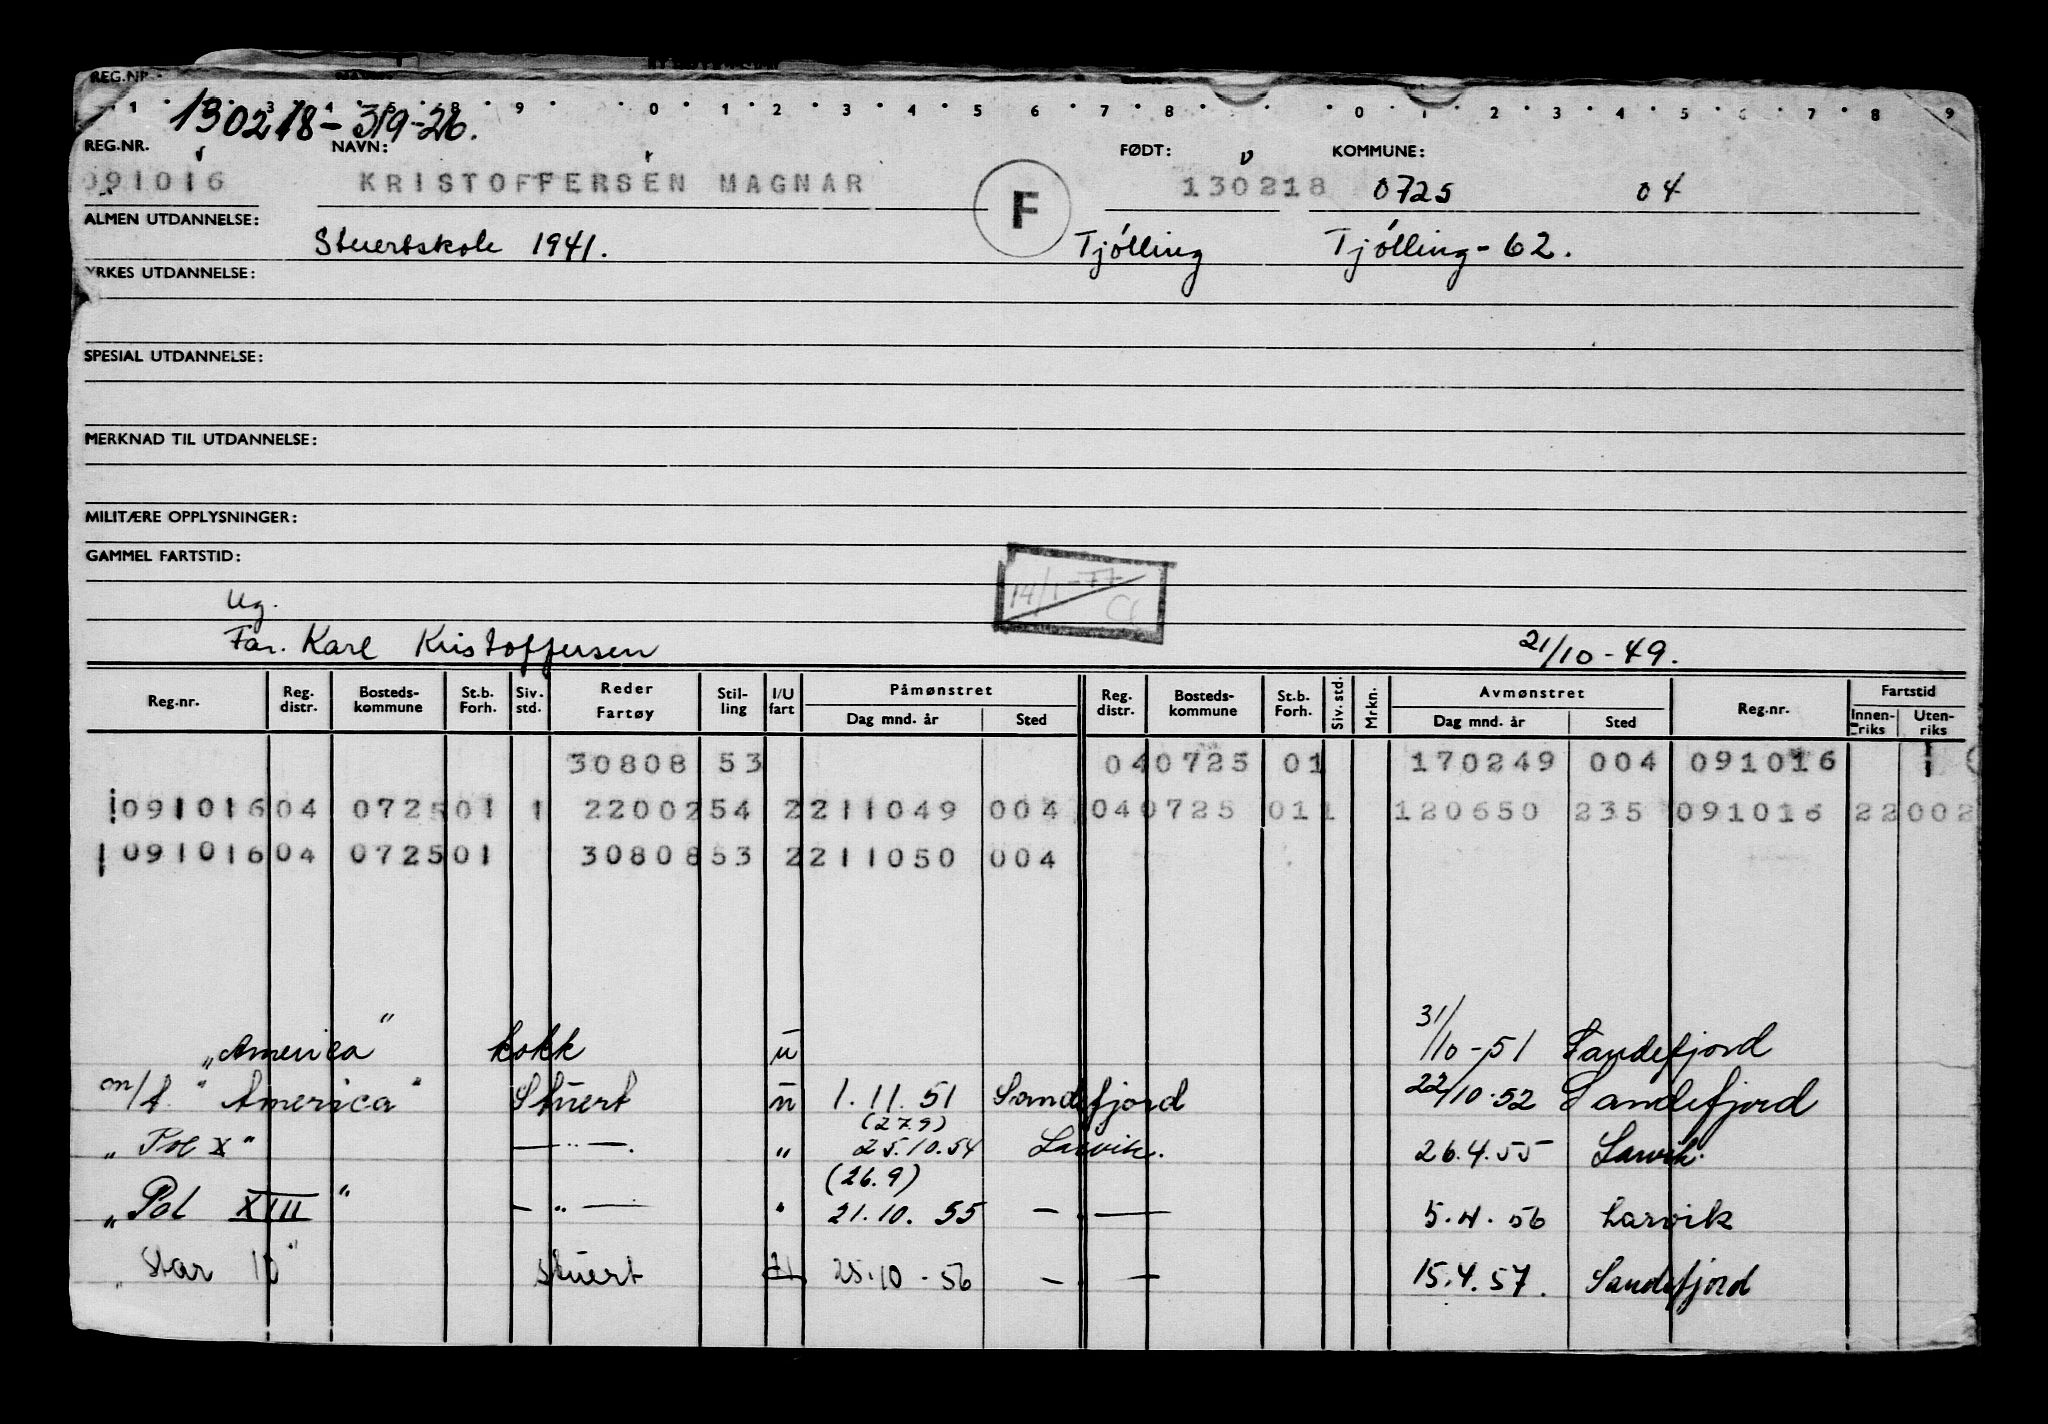 REG.NR.
1 3 4 5 8 9 0 1 2 3 4 5 6 7 8 0 1 2 3 4 5 6 7 8 9
130218-319-26.
REG.NR. NAVN: FØDT: KOMMUNE:
091016 KRISTOFFERSEN MAGNAR F 130218 0725 04
ALMEN UTDANNELSE:
Stuertskole 1941. Tjølling Tjølling-62.
YRKES UTDANNELSE:
SPESIAL UTDANNELSE:
MERKNAD TIL UTDANNELSE:
MILITÆRE OPPLYSNINGER:
GAMMEL FARTSTID:
14/1-77
Ug.
Far. Karl Kristoffersen 21/10-49.
Reg.nr. Reg. distr. Bosteds-kommune St.b. Forh. Siv. std. Reder Fartøy Stil-ling I/U fart Påmønstret Dag mnd. år Sted Reg. distr. Bosteds-kommune St.b. Forh. Siv. std. Mrkn. Avmønstret Dag mnd. år Sted Reg.nr. Fartstid Innen-riks Uten-riks
30808 53 04 0725 01 170249 004 091016
091016 04 0725 01 1 22002 54 2 211049 004 04 0725 01 1 120650 235 091016 22002
091016 04 0725 01 30808 53 2 211050 004
"America" kokk u 31/10-51 Sandefjord
m/t. "America" Stuert u 1.11.51 Sandefjord 22/10.52 Sandefjord
(27.9)
"Pol X" —"—. " 25.10.54 Larvik. 26.4.55 Larvik.
(26.9)
"Pol XIII" —"— " 21.10.55 —"— 5.4.56 Larvik
"Star 10" Stuert u 25.10-56 —"— 15.4.57. Sandefjord